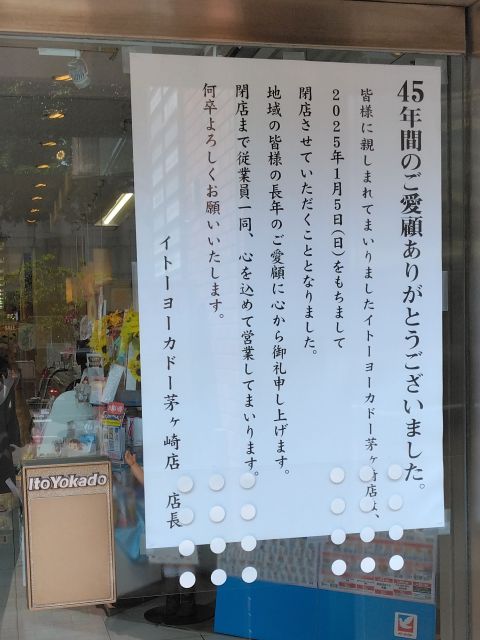 45年間のご愛顧ありがとうございました。
皆様に親しまれてまいりましたイトーヨーカドー茅ヶ崎店は、
2025年1月5日(日)をもちまして
閉店させていただくこととなりました。
地域の皆様の長年のご愛顧に心から御礼申し上げます。
閉店まで従業員一同、心を込めて営業してまいります。
何卒よろしくお願いいたします。
イトーヨーカドー茅ヶ崎店 店長
ItoYokado